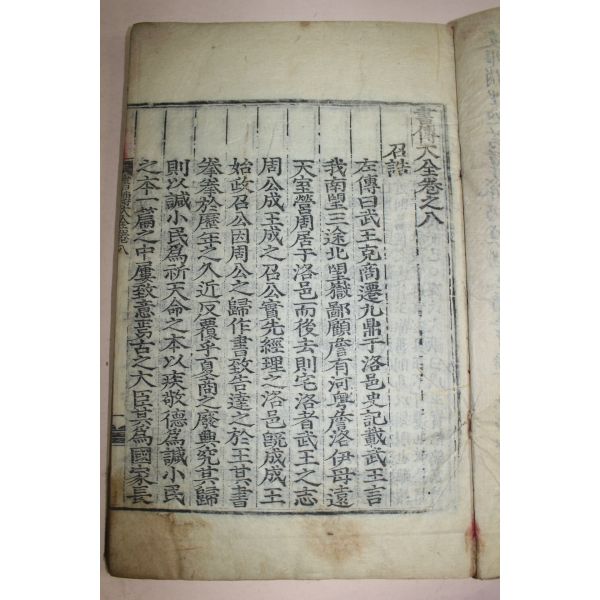 書傳大全卷之八
召誥
左傳曰武王克商遷九鼎于洛邑史記載武王言
我南望三途北望嶽鄙顧詹有河粤詹洛伊毋遠
天室營周居于洛邑而後去則宅洛者武王之志
周公成王成之召公實先經理之洛邑旣成成王
始政召公因周公之歸作書致告達之於王其書
拳拳於歷年之久近反覆乎夏商之廢興究其歸
則以諴小民爲祈天命之本以疾敬德爲諴小民
之本一篇之中屢致意焉古之大臣其爲國家長
書傳大全卷八